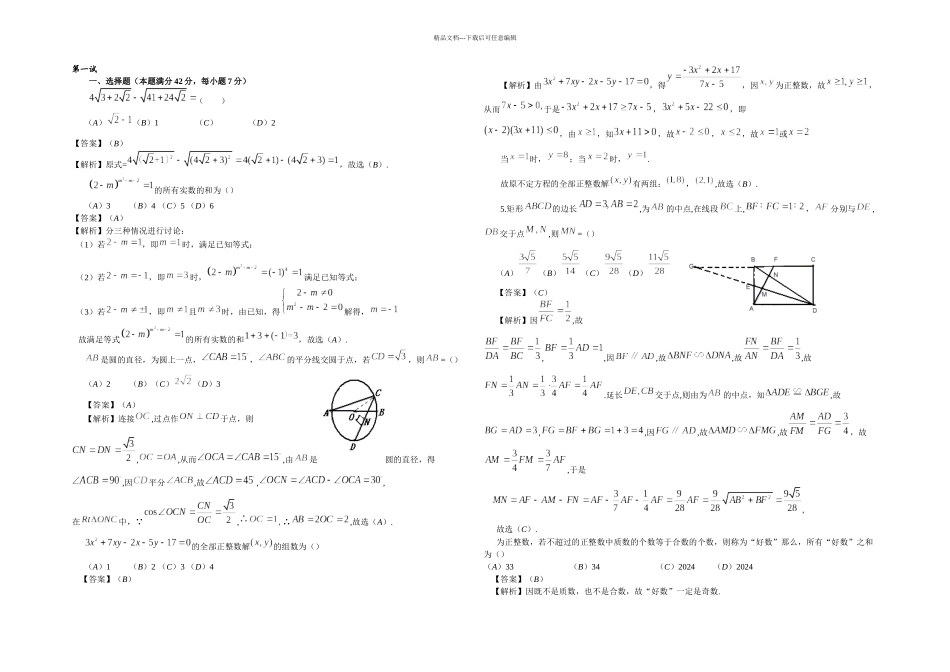 精品文档---下载后可任意编辑
第一试
一、选择题（本题满分 42 分，每小题 7 分）
4√(3+2√2)－√(41+24√2)＝（　　）
（A）√2－1（B）1　　（C）　　（D）2
【答案】（B）
【解析】原式=4√(√2+1)²－√(4√2+3)²＝4(√2＋1)－(4√2＋3)＝1，故选（B）.
(2－m)^(m²－m－2)＝1的所有实数的和为（）
（A）3　　（B）4（C）5（D）6
【答案】（A）
【解析】分三种情况进行讨论：
（1）若2－m＝1，即m＝1时，满足已知等式；
（2）若2－m＝－1，即m＝3时，(2－m)^(m²－m－2)＝(－1)⁴＝1满足已知等式；
（3）若2－m≠±1，即m≠1且m≠3时，由已知，得{2－m≠0 m²－m－2＝0 解得，m＝－1
故满足等式(2－m)^(m²－m－2)＝1的所有实数的和1＋3＋(－1)＝3，故选（A）.
AB是圆的直径，为圆上一点，∠CAB＝15，∠ABC的平分线交圆于点，若CD＝√3，则AB＝（）
（A）2　　（B）（C）2√2（D）3
【答案】（A）
【解析】连接OC,过点作ON⊥CD于点，则
CN＝DN＝√3/2,OC＝OA,从而∠OCA＝∠CAB＝15°,由AB是圆的直径，得
A B C D O N
∠ACB＝90°,因CD平分∠ACB,故∠ACD＝45°,∠OCN＝∠ACD－∠OCA＝30°,
在Rt△ONC中，∵cos∠OCN＝CN/OC＝√3/2,∴OC＝1,∴AB＝2OC＝2,故选（A）.
3x²＋7xy－2x－5y－17＝0的全部正整数解(x,y)的组数为（）
（A）1　　（B）2（C）3（D）4
【答案】（B）
【解析】由3x²＋7xy－2x－5y－17＝0，得y＝(－3x²＋2x＋17)/(7x－5)，因x,y为正整数，故x≥1,y≥1，
从而7x－5＞0,于是－3x²＋2x＋17≥7x－5，3x²＋5x－22≤0，即
(x－2)(3x＋11)≤0，由x≥1，知3x＋11＞0，故x－2≤0，x≤2，故x＝1或x＝2
当x＝1时，y＝8；当x＝2时，y＝1.
故原不定方程的全部正整数解(x,y)有两组：(1,8)，(2,1),故选（B）.
5.矩形ABCD的边长AD＝3,AB＝2,为AB的中点,在线段BC上,BF∶FC＝1∶2，AF分别与DE，
DB交于点M,N,则MN＝（）
（A）3√5/7（B）5√5/14（C）9√5/28（D）11√5/28
G B F C N E M A D
【答案】（C）
【解析】因BF/FC＝1/2,故
BF/DA＝BF/BC＝1/3，BF＝1/3AD＝1,因BF∥AD,故△BNF∽△DNA,故FN/AN＝BF/DA＝1/3,故
FN＝1/3AN＝1/3·3/4AF＝1/4AF.延长DE,CB交于点,则由为AB的中点，知△ADE≌△BGE,故
BG＝AD＝3,FG＝BF＋BG＝1＋3＝4,因FG∥AD,故△AMD∽△FMG,故AM/FM＝AD/FG＝3/4，故
AM＝3/4FM＝3/7AF,于是
MN＝AF－AM－FN＝AF－3/7AF－1/4AF＝9/28AF＝9/28√(AB²＋BF²)＝9√5/28，
故选（C）.
为正整数，若不超过的正整数中质数的个数等于合数的个数，则称为“好数”那么，所有“好数”之和
为（）
（A）33　　（B）34　　（C）2024　　（D）2024
【答案】（B）
【解析】因既不是质数，也不是合数，故“好数”一定是奇数.